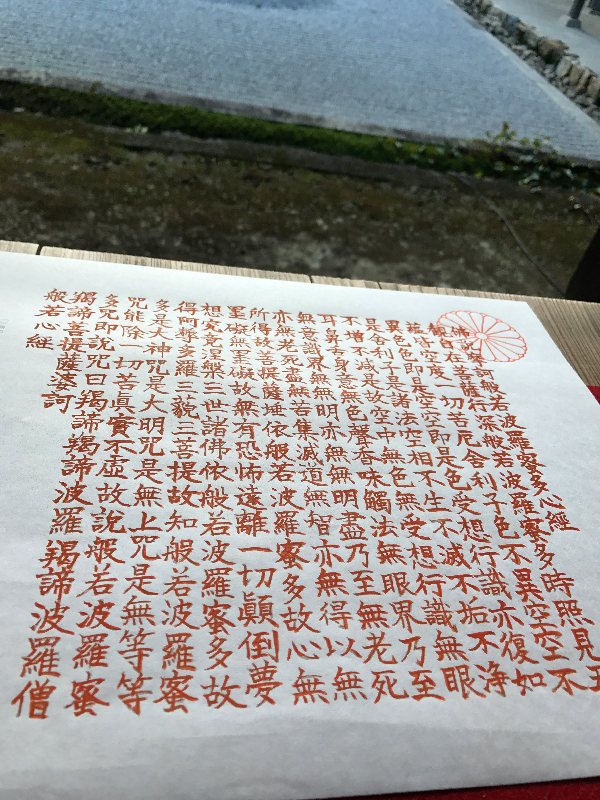 佛説摩訶般若波羅蜜多心經
觀自在菩薩行深般若波羅蜜多時照見五
蘊皆空度一切苦厄舍利子色不異空空不
異色色即是空空即是色受想行識亦復如
是舍利子是諸法空相不生不滅不垢不浄
不增不減是故空中無色無受想行識無眼
耳鼻舌身意無色聲香味觸法無眼界乃至
無意識界無無明亦無無明盡乃至無老死
亦無老死盡無苦集滅道無智亦無得以無
所得故菩提薩埵依般若波羅蜜多故心無
罣礙無罣礙故無有恐怖遠離一切顛倒夢
想究竟涅槃三世諸佛依般若波羅蜜多故
得阿耨多羅三藐三菩提故知般若波羅蜜
多是大神咒是大明咒是無上咒是無等等
咒能除一切苦眞實不虛故説般若波羅蜜
多咒即説咒曰羯諦羯諦波羅羯諦波羅僧
羯諦菩提薩婆訶
般若心経